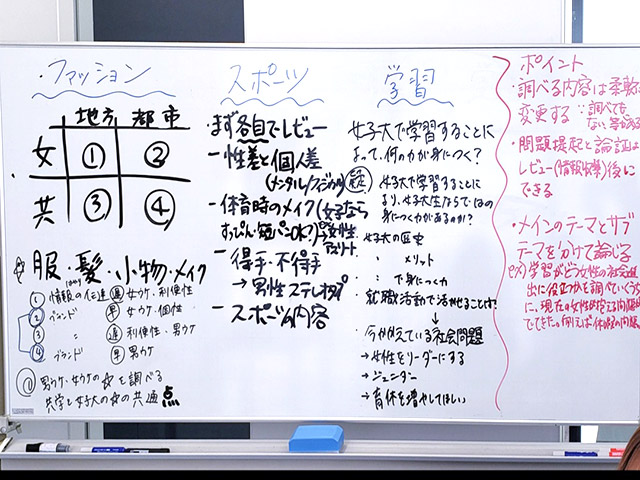 ・ファッション
地方 都市
女 ① ②
共 ③ ④
☆服・髪・小物・メイク
① 情報の伝達 遅 女ウケ・利便性
② ブランド 早 女ウケ・個性
③ 〃 遅 利便性・男ウケ
④ ブランド 早 男ウケ
男ウケ・女ウケの☆を調べる
共学と女子大の☆の共通点
スポーツ
・まず各自でレビュー
－性差と個人差
(メンタル/フィジカル)
－体育時のメイク(女子なら
すっぴん・短パンOK?)
－得手・不得手
→男性ステレオタイプ
－スポーツの内容
学習
女子大で学習することに
よって、何の力が身につく?
女子大で学習することに
より、女子大生ならではの
身につく力があるのか?
女子大の歴史
〃 メリット
〃 で身につく力
就職活動で活かせることは?
↓
今かかえている社会問題
→女性をリーダーにする
→ジェンダー
→育休を増やしてほしい
ポイント
・調べる内容は柔軟に
変更する ∵調べても
ない等ある
・問題提起と論証は
レビュー(情報収集)後に
できる
・メインのテーマとサブ
テーマを分けて論じる
学習がどう女性の社会進
出に役立つかを調べていくうち
に、現在の女性が抱える問題が
でてきた。例えば体の問題